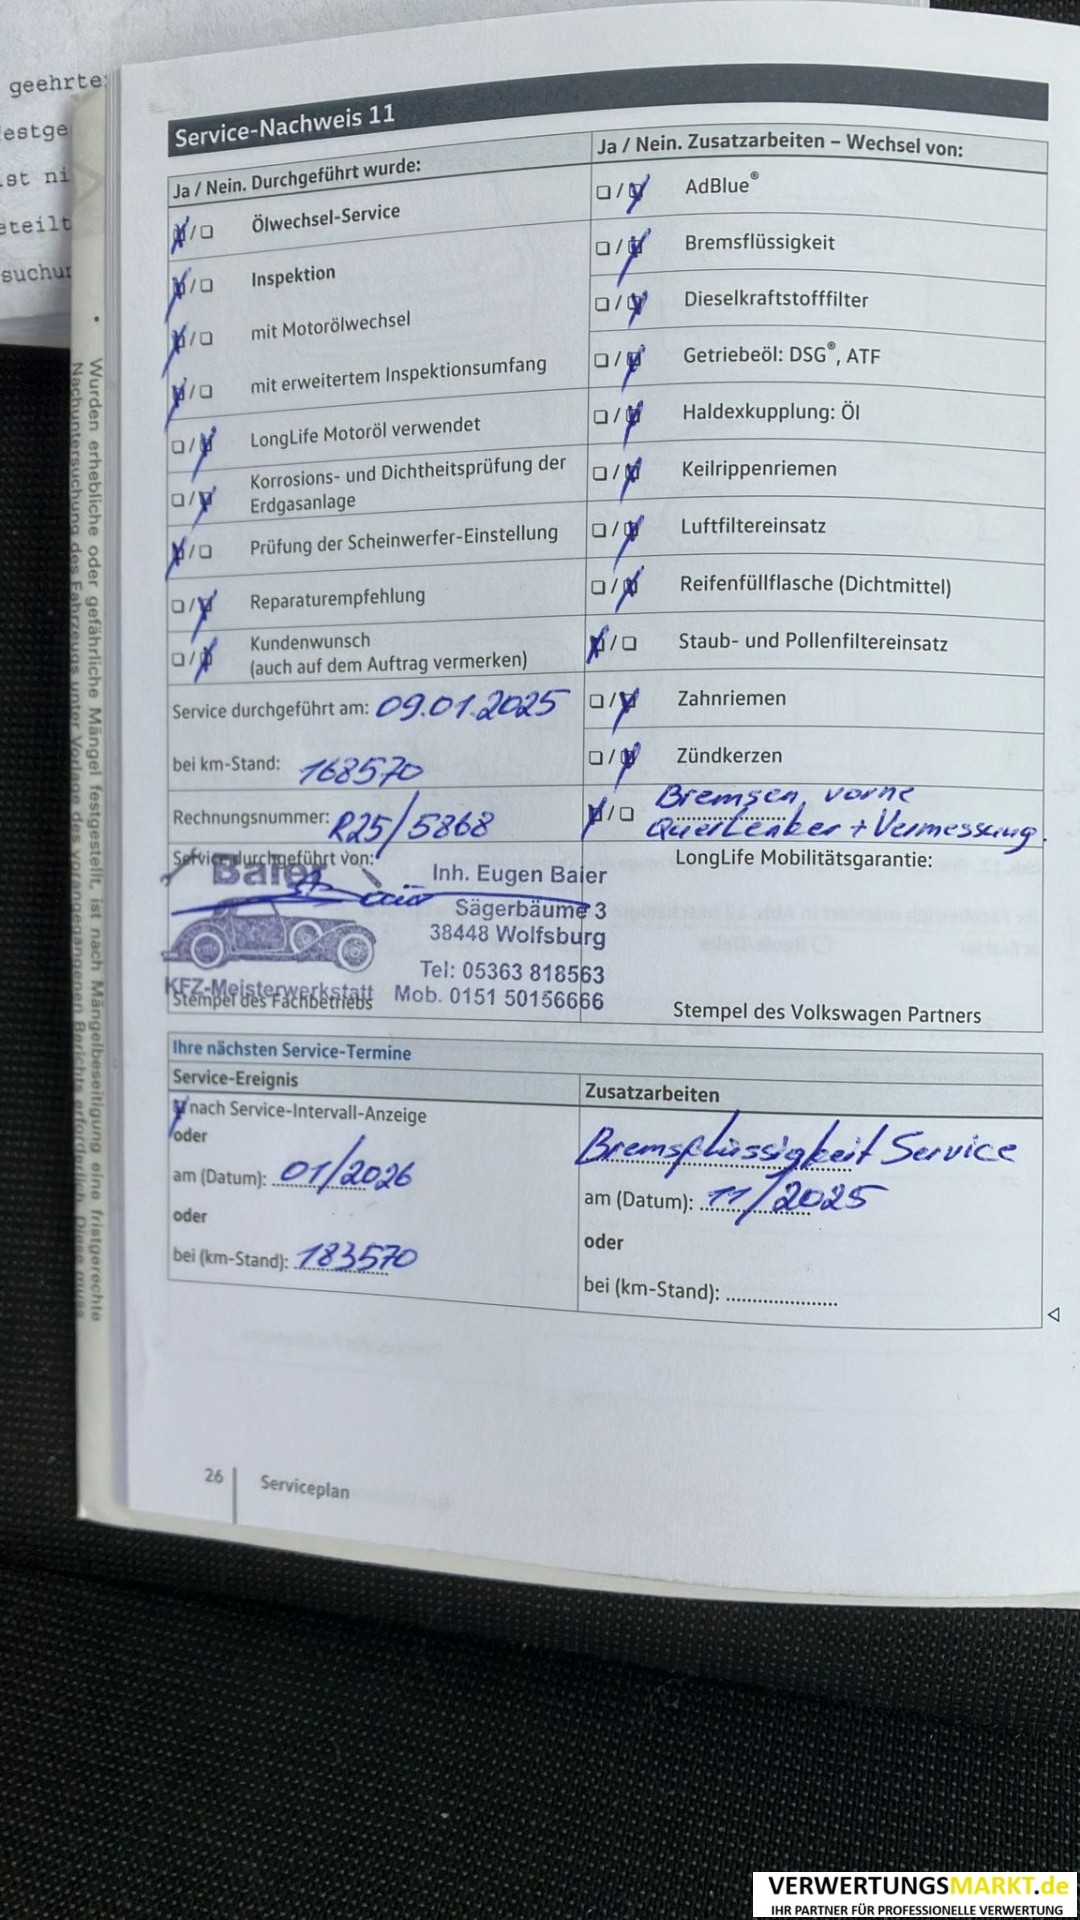 geehrte
estge
ist ni
eteilt
suchur
Wurden erhebliche oder gefährliche Mängel festgestellt, ist nach Mängelbeseitigung eine fristgerechte
Nachuntersuchung des Fahrzeugs unter Vorlage des vorangegangenen Berichts erforderlich. Diese muss
Service-Nachweis 11
Ja / Nein. Durchgeführt wurde:
Ölwechsel-Service
Inspektion
mit Motorölwechsel
mit erweitertem Inspektionsumfang
LongLife Motoröl verwendet
Korrosions- und Dichtheitsprüfung der
Erdgasanlage
Prüfung der Scheinwerfer-Einstellung
Reparaturempfehlung
Kundenwunsch
(auch auf dem Auftrag vermerken)
Service durchgeführt am: 09.01.2025
bei km-Stand: 168570
Rechnungsnummer: R25/5868
Service durchgeführt von:
Baier
Inh. Eugen Baier
Sägerbäume 3
38448 Wolfsburg
Tel: 05363 818563
KFZ-Meisterwerkstatt Mob. 0151 50156666
Stempel des Fachbetriebs
Ja / Nein. Zusatzarbeiten – Wechsel von:
AdBlue®
Bremsflüssigkeit
Dieselkraftstofffilter
Getriebeöl: DSG®, ATF
Haldexkupplung: Öl
Keilrippenriemen
Luftfiltereinsatz
Reifenfüllflasche (Dichtmittel)
Staub- und Pollenfiltereinsatz
Zahnriemen
Zündkerzen
Bremsen vorne
Querlenker + Vermessung.
LongLife Mobilitätsgarantie:
Stempel des Volkswagen Partners
Ihre nächsten Service-Termine
Service-Ereignis
nach Service-Intervall-Anzeige
oder
am (Datum): 01/2026
oder
bei (km-Stand): 183570
Zusatzarbeiten
Bremsflüssigkeit Service
am (Datum): 11/2025
oder
bei (km-Stand): ....................
26 Serviceplan
VERWERTUNGSMARKT.de
IHR PARTNER FÜR PROFESSIONELLE VERWERTUNG